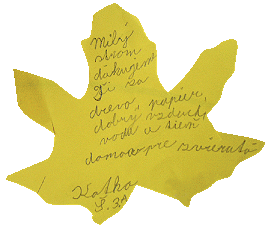 Milý
strom
ďakujem
Ti za
drevo, papier,
dobrý vzduch,
vodu a tieň
domov pre zvieratá
Katka